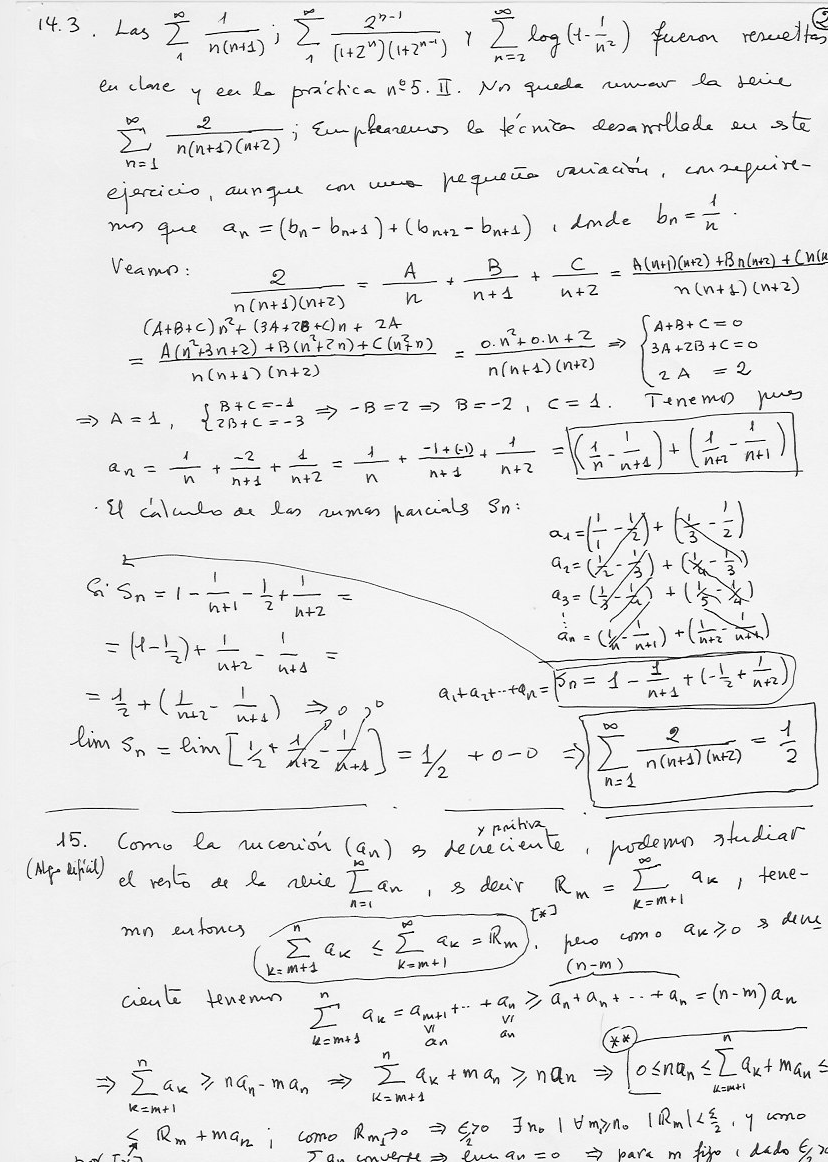 2
14.3. Las $\sum_{1}^{\infty} \frac{1}{n(n+1)}$; $\sum_{1}^{\infty} \frac{2^{n-1}}{(1+2^n)(1+2^{n-1})}$ y $\sum_{n=2}^{\infty} \log(1-\frac{1}{n^2})$ fueron resueltas
en clase y en la práctica nº 5. II. Nos queda sumar la serie
$\sum_{n=1}^{\infty} \frac{2}{n(n+1)(n+2)}$; Emplearemos la técnica desarrollada en este
ejercicio, aunque con una pequeña variación, conseguire-
mos que $a_n = (b_n - b_{n+1}) + (b_{n+2} - b_{n+1})$, donde $b_n = \frac{1}{n}$.
Veamos: $\frac{2}{n(n+1)(n+2)} = \frac{A}{n} + \frac{B}{n+1} + \frac{C}{n+2} = \frac{A(n+1)(n+2)+Bn(n+2)+Cn(n}{n(n+1)(n+2)}$
(A+B+C)n²+(3A+2B+C)n+ 2A
$= \frac{A(n^2+3n+2)+B(n^2+2n)+C(n^2+n)}{n(n+1)(n+2)} = \frac{0.n^2+0.n+2}{n(n+1)(n+2)} \Rightarrow \begin{cases} A+B+C=0 \\ 3A+2B+C=0 \\ 2A=2 \end{cases}$
$\Rightarrow A=1, \begin{cases} B+C=-1 \\ 2B+C=-3 \end{cases} \Rightarrow -B=2 \Rightarrow B=-2, C=1.$ Tenemos pues
$a_n = \frac{1}{n} + \frac{-2}{n+1} + \frac{1}{n+2} = \frac{1}{n} + \frac{-1+(-1)}{n+1} + \frac{1}{n+2} = (\frac{1}{n} - \frac{1}{n+1}) + (\frac{1}{n+2} - \frac{1}{n+1})$
· El cálculo de las sumas parcials Sn:
$a_1 = (\frac{1}{1} - \frac{1}{2}) + (\frac{1}{3} - \frac{1}{2})$
$a_2 = (\frac{1}{2} - \frac{1}{3}) + (\frac{1}{4} - \frac{1}{3})$
$a_3 = (\frac{1}{3} - \frac{1}{4}) + (\frac{1}{5} - \frac{1}{4})$
⋮
$a_n = (\frac{1}{n} - \frac{1}{n+1}) + (\frac{1}{n+2} - \frac{1}{n+1})$
$a_1+a_2+\cdots+a_n = S_n = 1 - \frac{1}{n+1} + (-\frac{1}{2} + \frac{1}{n+2})$
Si $S_n = 1 - \frac{1}{n+1} - \frac{1}{2} + \frac{1}{n+2} =$
$= (1-\frac{1}{2}) + \frac{1}{n+2} - \frac{1}{n+1} =$
$= \frac{1}{2} + (\frac{1}{n+2} - \frac{1}{n+1}) \Rightarrow$ 0 0
$\lim S_n = \lim [\frac{1}{2} + \frac{1}{n+2} - \frac{1}{n+1}] = 1/2 + 0 - 0 \Rightarrow \sum_{n=1}^{\infty} \frac{2}{n(n+1)(n+2)} = \frac{1}{2}$
15. Como la sucesión (an) es decreciente y positiva, podemos studiar
(Algo difícil) el resto de la serie $\sum_{n=1}^{\infty} a_n$, es decir $R_m = \sum_{k=m+1}^{\infty} a_k$, tene-
mos entonces $\sum_{k=m+1}^{n} a_k \le \sum_{k=m+1}^{\infty} a_k = R_m$ [*], pero como $a_k \ge 0$ es decre
(n-m)
ciente tenemos $\sum_{k=m+1}^{n} a_k = a_{m+1} + \cdots + a_n \ge a_n + a_n + \cdots + a_n = (n-m)a_n$
≥ an ≥ an
(**)
$\Rightarrow \sum_{k=m+1}^{n} a_k \ge na_n - ma_n \Rightarrow \sum_{k=m+1}^{n} a_k + ma_n \ge na_n \Rightarrow 0 \le na_n \le \sum_{k=m+1}^{n} a_k + ma_n \le$
$\le R_m + ma_n$; como $R_m \to 0 \Rightarrow \frac{\varepsilon}{2} > 0 \ \exists n_0 \mid \forall m \ge n_0 \ |R_m| < \frac{\varepsilon}{2}$, y como
por [*] $\sum a_n$ converge $\Rightarrow \lim a_n = 0 \Rightarrow$ para m fijo, dado